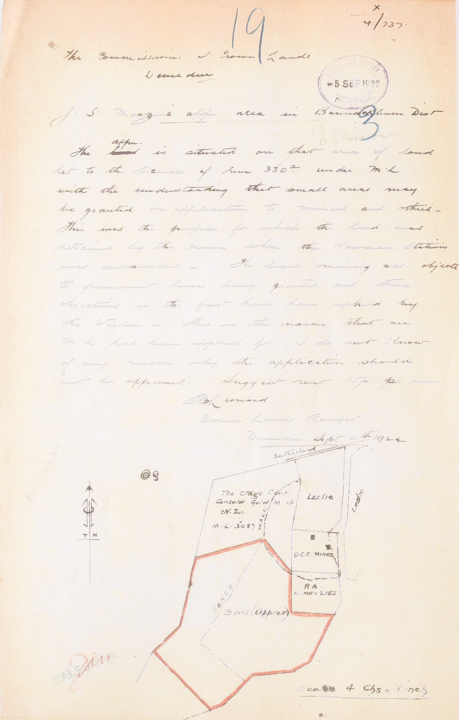 19
x
4/737
The Commissioner of Crown Lands
Dunedin
5 SEP 1922
3
J. S. Menzies appn area in Dist
appn.
The is situated on that area of land
let to the licensee of Run 330a under M L
with the understanding that small areas may
be granted on application to miners and others -
This was the purpose for which the land was
retained by the crown when the Station
was subdivided - The objects
to permanent leases being granted and these
objections in the past have been upheld by
the Warden & this is the reason that an
M.L. had been applied for. I do not know
of any reason why the application should
not be approved. Suggest rent 15/- p
Crown Lands Ranger
Dunedin Sept 4th 1922
Sutherland
The Otago Cent
Consold Gold M
N.Z.
M.L. 3087
WALL
Leslie
O.C.C. MINES
R A
J. MENZIES
FENCE
8acs (Approx)
Scale 4 Chs = 1 inch